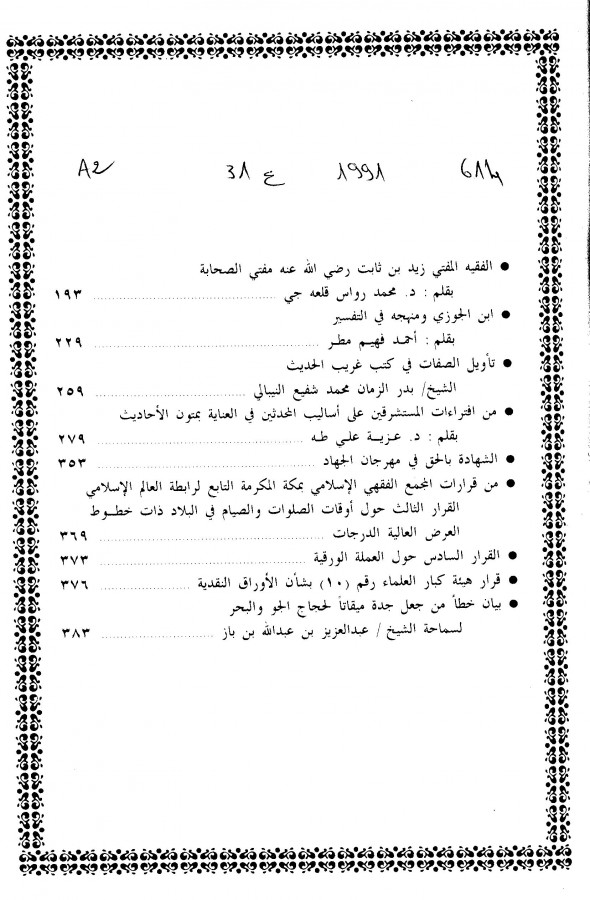 A2 31 ع 1991 614
● الفقيه المفتي زيد بن ثابت رضي الله عنه مفتي الصحابة
بقلم : د. محمد رواس قلعه جي ١٩٣
● ابن الجوزي ومنهجه في التفسير
بقلم : أحمد فهيم مطر ٢٢٩
● تأويل الصفات في كتب غريب الحديث
الشيخ/ بدر الزمان محمد شفيع النيبالي ٢٥٩
● من افتراءات المستشرقين على أساليب المحدثين في العناية بمتون الأحاديث
بقلم : د. عزيــة علي طـه ٢٧٩
● الشهادة بالحق في مهرجان الجهاد ٣٥٣
● من قرارات المجمع الفقهي الإسلامي بمكة المكرمة التابع لرابطة العالم الإسلامي
القرار الثالث حول أوقات الصلوات والصيام في البلاد ذات خطــوط
العرض العالية الدرجات ٣٦٩
● القرار السادس حول العملة الورقية ٣٧٣
● قرار هيئة كبار العلماء رقم (١٠) بشأن الأوراق النقدية ٣٧٦
● بيان خطأ من جعل جدة ميقاتاً لحجاج الجو والبحر
لسماحة الشيخ / عبدالعزيز بن عبدالله بن باز ٣٨٣